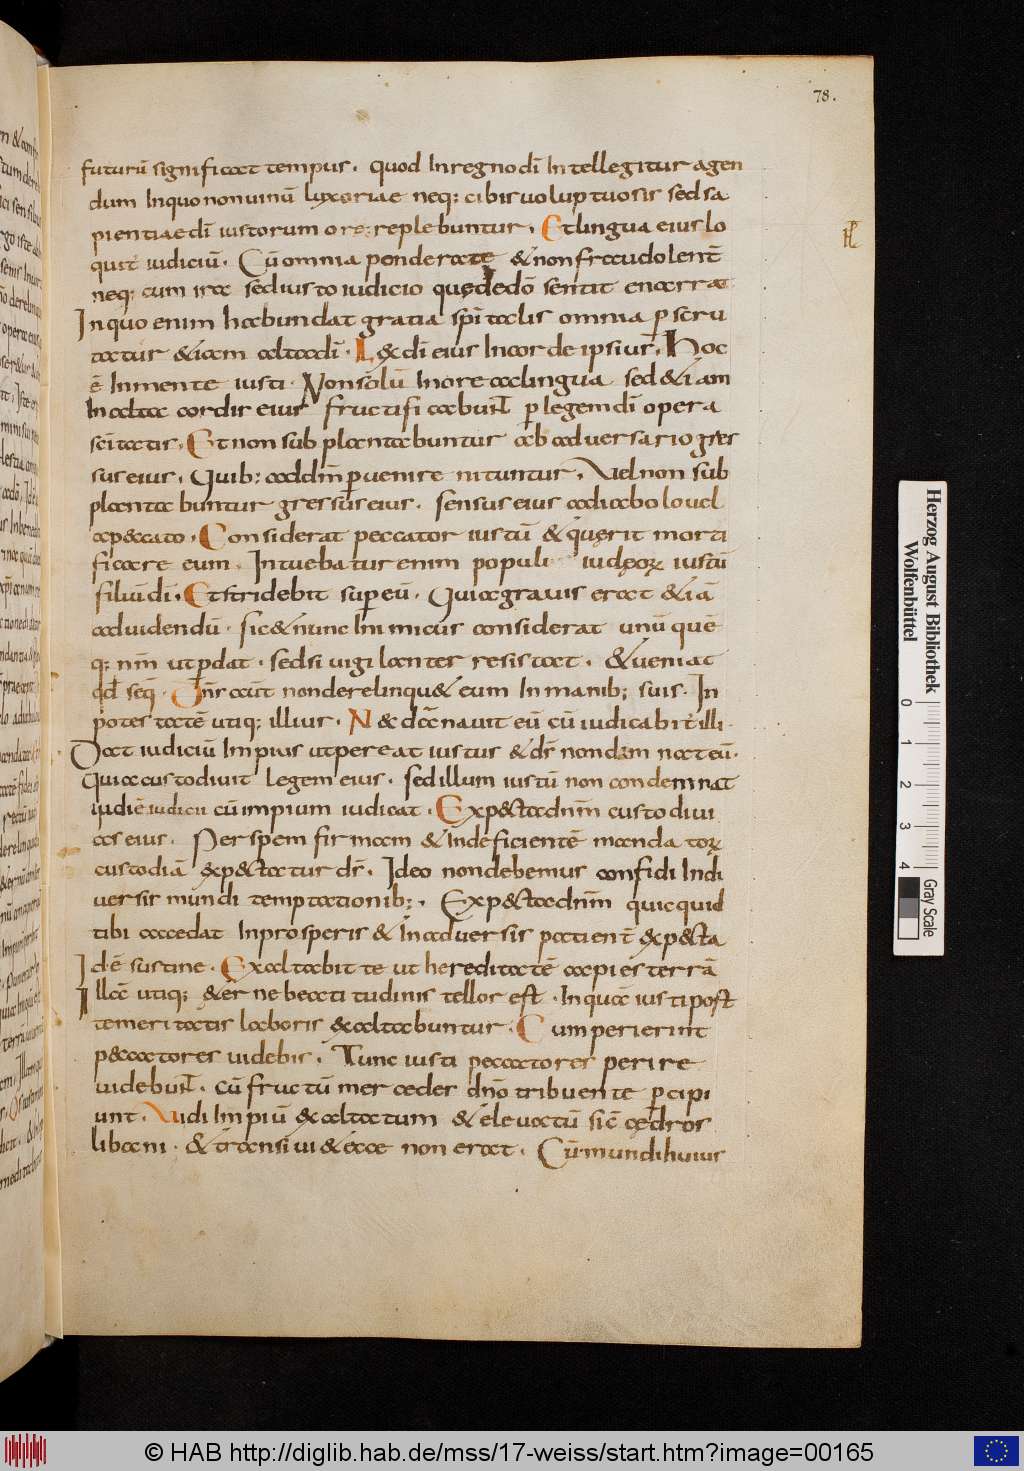 78.
futurū significat tempus. quod In regno dī Intellegitur agen
dum Inquo nonuinū luxoriae neq; cibis uoluptuosis sed sa
pientiae dī iustorum ore replebuntur. Et lingua eius lo
quit iudiciū. Cū omnia ponderate & non fraudolent̄
neq; cum ira sed iusto iudicio quę de dō sentit enarrat
In quo enim habundat gratia sp̄italis omnia p scru
tatur & iam alta dī. Lex dī eius In corde ipsius. Hoc
ē In mente iusti. Non solū In ore ac lingua sed & iam
In alta cordis eius fructificabun̄t p legem dī opera
sc̄itatis. Et non subplantabuntur ab aduersario gres
sus eius. Quib; ad dn̄m puenire nituntur. Vel non sub
plantabuntur gressus eius. sensus eius a diabolo uel
a peccato. Considerat peccator iustū & quęrit morti
ficare eum. Intuebatur enim populi iudęoꝝ iustū
filiū dī. Et stridebit sup eū. Quia grauis erat & iā
ad uidendū. sic & nunc Inimicus considerat unū quē
q; nr̄m ut pdat. sed si uigilanter resistat. & ueniat
qd̄ seq̄. Dn̄s aūt non derelinqu& eum In manib; suis. In
potestatē utiq; illius. N & dānauit eū cū iudicabit̄ illi.
Dat iudiciū Impius ut pereat iustus & ds̄ non damnat eū.
Quia custodiuit legem eius. sed illum iustū non condemnat
iudiē iudicii cū impium iudicat. Exp&ta dn̄m custodi ui
as eius. Per spem firmam & Indeficientē mandatoꝝ
custodiā exp&tatur ds̄. Ideo non debemus confidi In di
uersis mundi temptationib;. Exp&ta dn̄m quicquid
tibi accedat In prosperis & In aduersis patient̄ exp&ta
Id ē sustine. Exaltabit te ut hereditatē capies terrā
Illā utiq; & ernę beatitudinis tellos est. In qua iusti post
temeritatis laboris exaltabuntur. Cum perierint
peccatores uidebis. Tunc iusti peccatores perire
uidebun̄t. cū fructū mercęder dn̄o tribuente pcipi
unt. Vidi Impiū exaltatum & eleuatū sic̄ cędros
libani. & transiui & ecce non erat. Cū mundi huius
Herzog August Bibliothek
Wolfenbüttel
0 1 2 3 4
Gray Scale
© HAB http://diglib.hab.de/mss/17-weiss/start.htm?image=00165